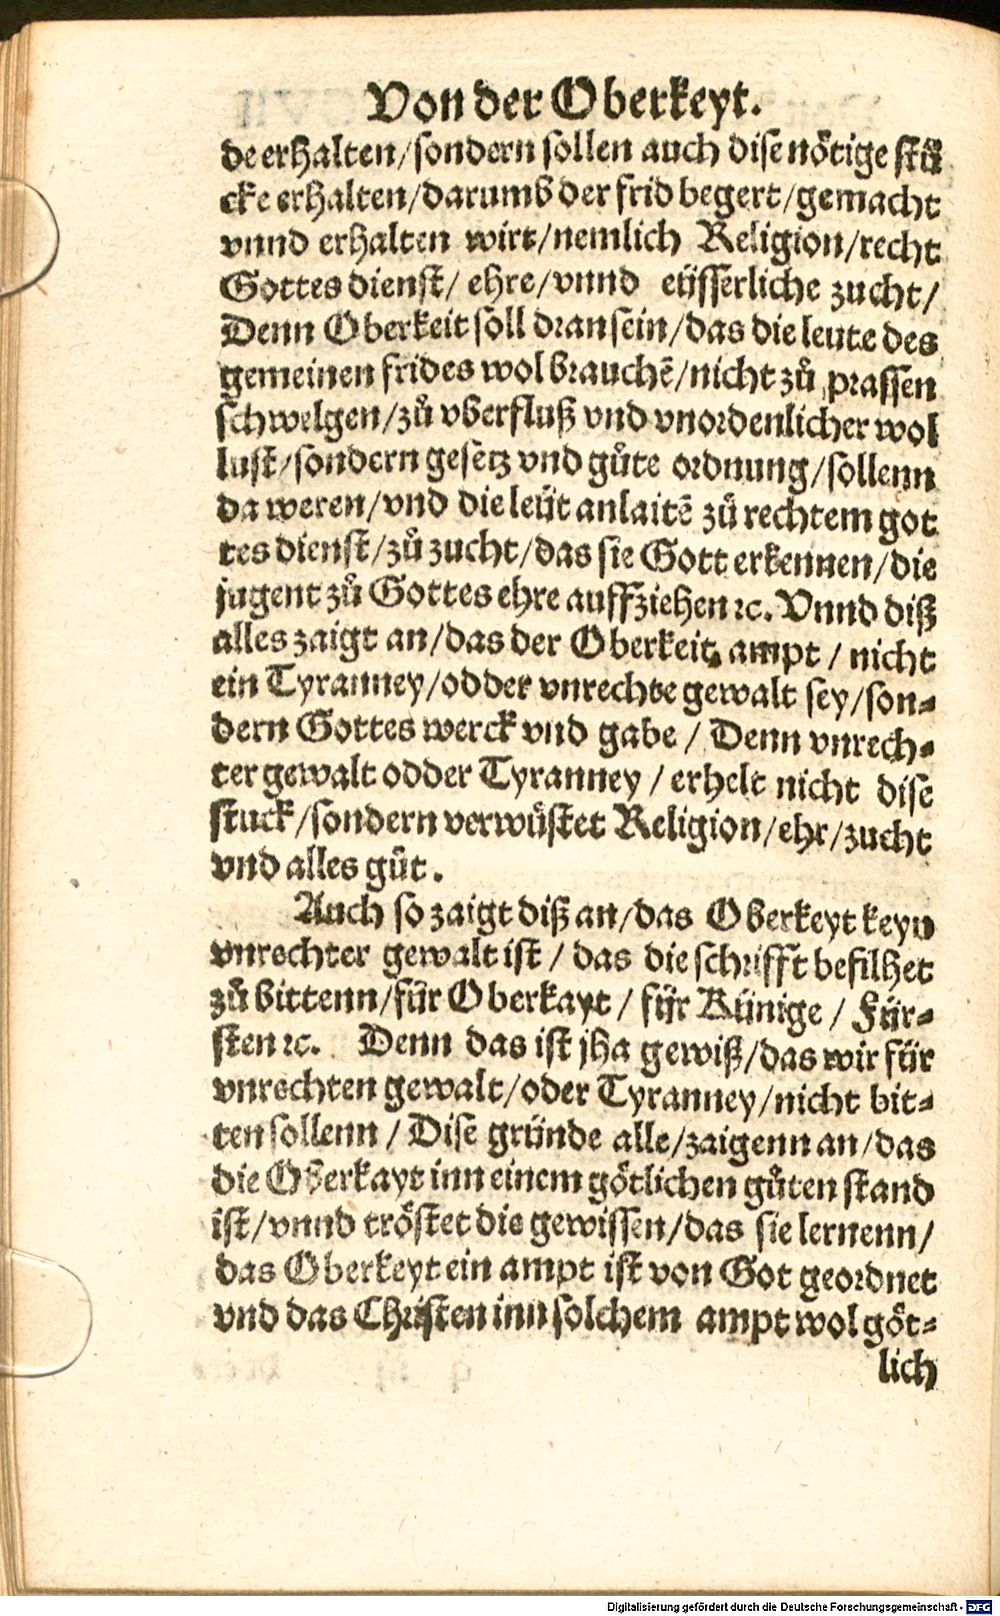 Von der Oberkeyt.
de erhalten/sondern sollen auch dise nötige stü
cke erhalten/darumb der frid begert/gemacht
vnnd erhalten wirt/nemlich Religion/recht
Gottes dienst/ ehre/vnnd eüsserliche zucht/
Denn Oberkeit soll dran sein/das die leute des
gemeinen frides wol brauchē/nicht zů prassen
schwelgen/zů vberfluß vnd vnordenlicher wol
lust/sondern gesetz vnd gůte ordnung/sollenn
da weren/vnd die leüt anlaitē zů rechtem got
tes dienst/zů zucht/das sie Gott erkennen/die
jugent zů Gottes ehre auffziehen ꝛc. Vnnd diß
alles zaigt an/das der Oberkeit ampt / nicht
ein Tyranney/odder vnrechte gewalt sey/son-
dern Gottes werck vnd gabe / Denn vnrech-
ter gewalt odder Tyranney / erhelt nicht dise
stuck/sondern verwüstet Religion/ehr/zucht
vnd alles gůt.
Auch so zaigt diß an/das Oberkeyt keyn
vnrechter gewalt ist / das die schrifft befilhet
zů bittenn/für Oberkayt / für Künige / Für-
sten ꝛc. Denn das ist jha gewiß/das wir für
vnrechten gewalt/oder Tyranney/nicht bit-
ten sollenn / Dise gründe alle/zaigenn an/das
die Oberkayt inn einem götlichen gůten stand
ist/vnnd tröstet die gewissen/das sie lernenn/
das Oberkeyt ein ampt ist von Got geordnet
vnd das Christen inn solchem ampt wol göt-
lich
Digitalisierung gefördert durch die Deutsche Forschungsgemeinschaft - DFG